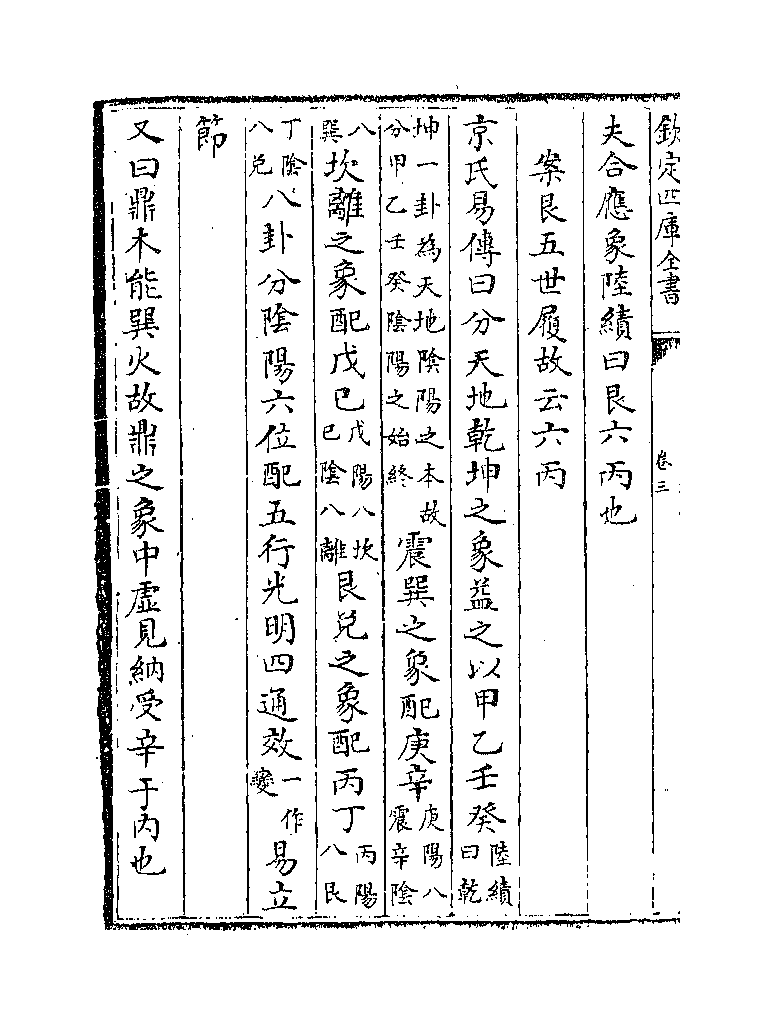 欽定四庫全書 卷三
夫合應象陸績曰艮六丙也
案艮五世履故云六丙
京氏易傳曰分天地乾坤之象益之以甲乙壬癸陸績曰乾
坤一卦為天地陰陽之本故分甲乙壬癸陰陽之始終震巽之象配庚辛庚陽入震辛陰
入巽坎離之象配戊己戊陽入坎己陰入離艮兌之象配丙丁丙陽入艮
丁陰入兌八卦分陰陽六位配五行光明四通效一作變易立
節
又曰鼎木能巽火故鼎之象中虛見納受辛于內也